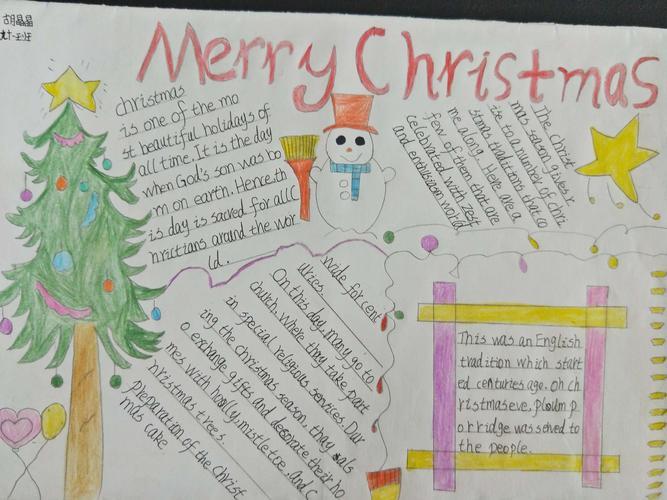 胡晶晶
Merry Christmas
christmas
is one of the mo
st beautiful holidays of
all time. It is the day
when God's son was bo
rn on earth. Hence, th
is day is sacred for all C
hrictians around the wor
ld.
The Christ
mas season gives r
ise to a number of chri
stmas traditions that co
me along. Here are a
few of them that are
celebrated with zest
and enthusiasm world
wide for cent
uries.
On this day, many go to
church. Where they take part
in special religious services. Dur
ing the christmas season, thay als
o exchange gifts and decorate their ho
mes with hoolly, mistletoe, and C
hristmas trees.
Preparation of the Christ
mas cake
This was an English
tradition which start
ed centuries ago. oh ch
ristmaseve, ploum p
orridge was selved to
the people.